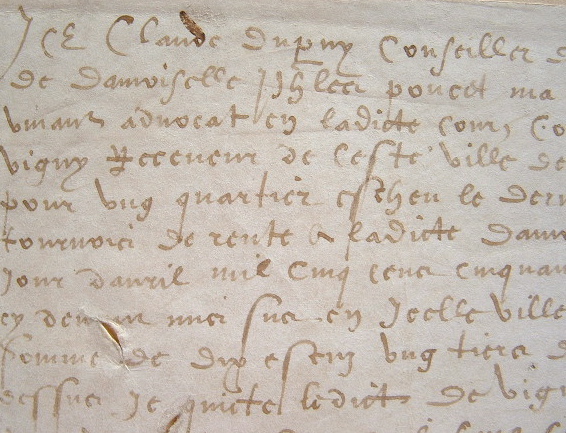 Je Claude Dupuy Conseiller d
de damoiselle poucet ma
vivant advocat en ladicte cour, Co
vigny Receveur de ceste ville de
pour ung quartier escheu le dern
tournois de rente a ladicte dam
Jour davril mil cinq cens cinquan
en Icelle ville
Somme de dix escuz ung tiers d
dessus Je quicte ledict de vign